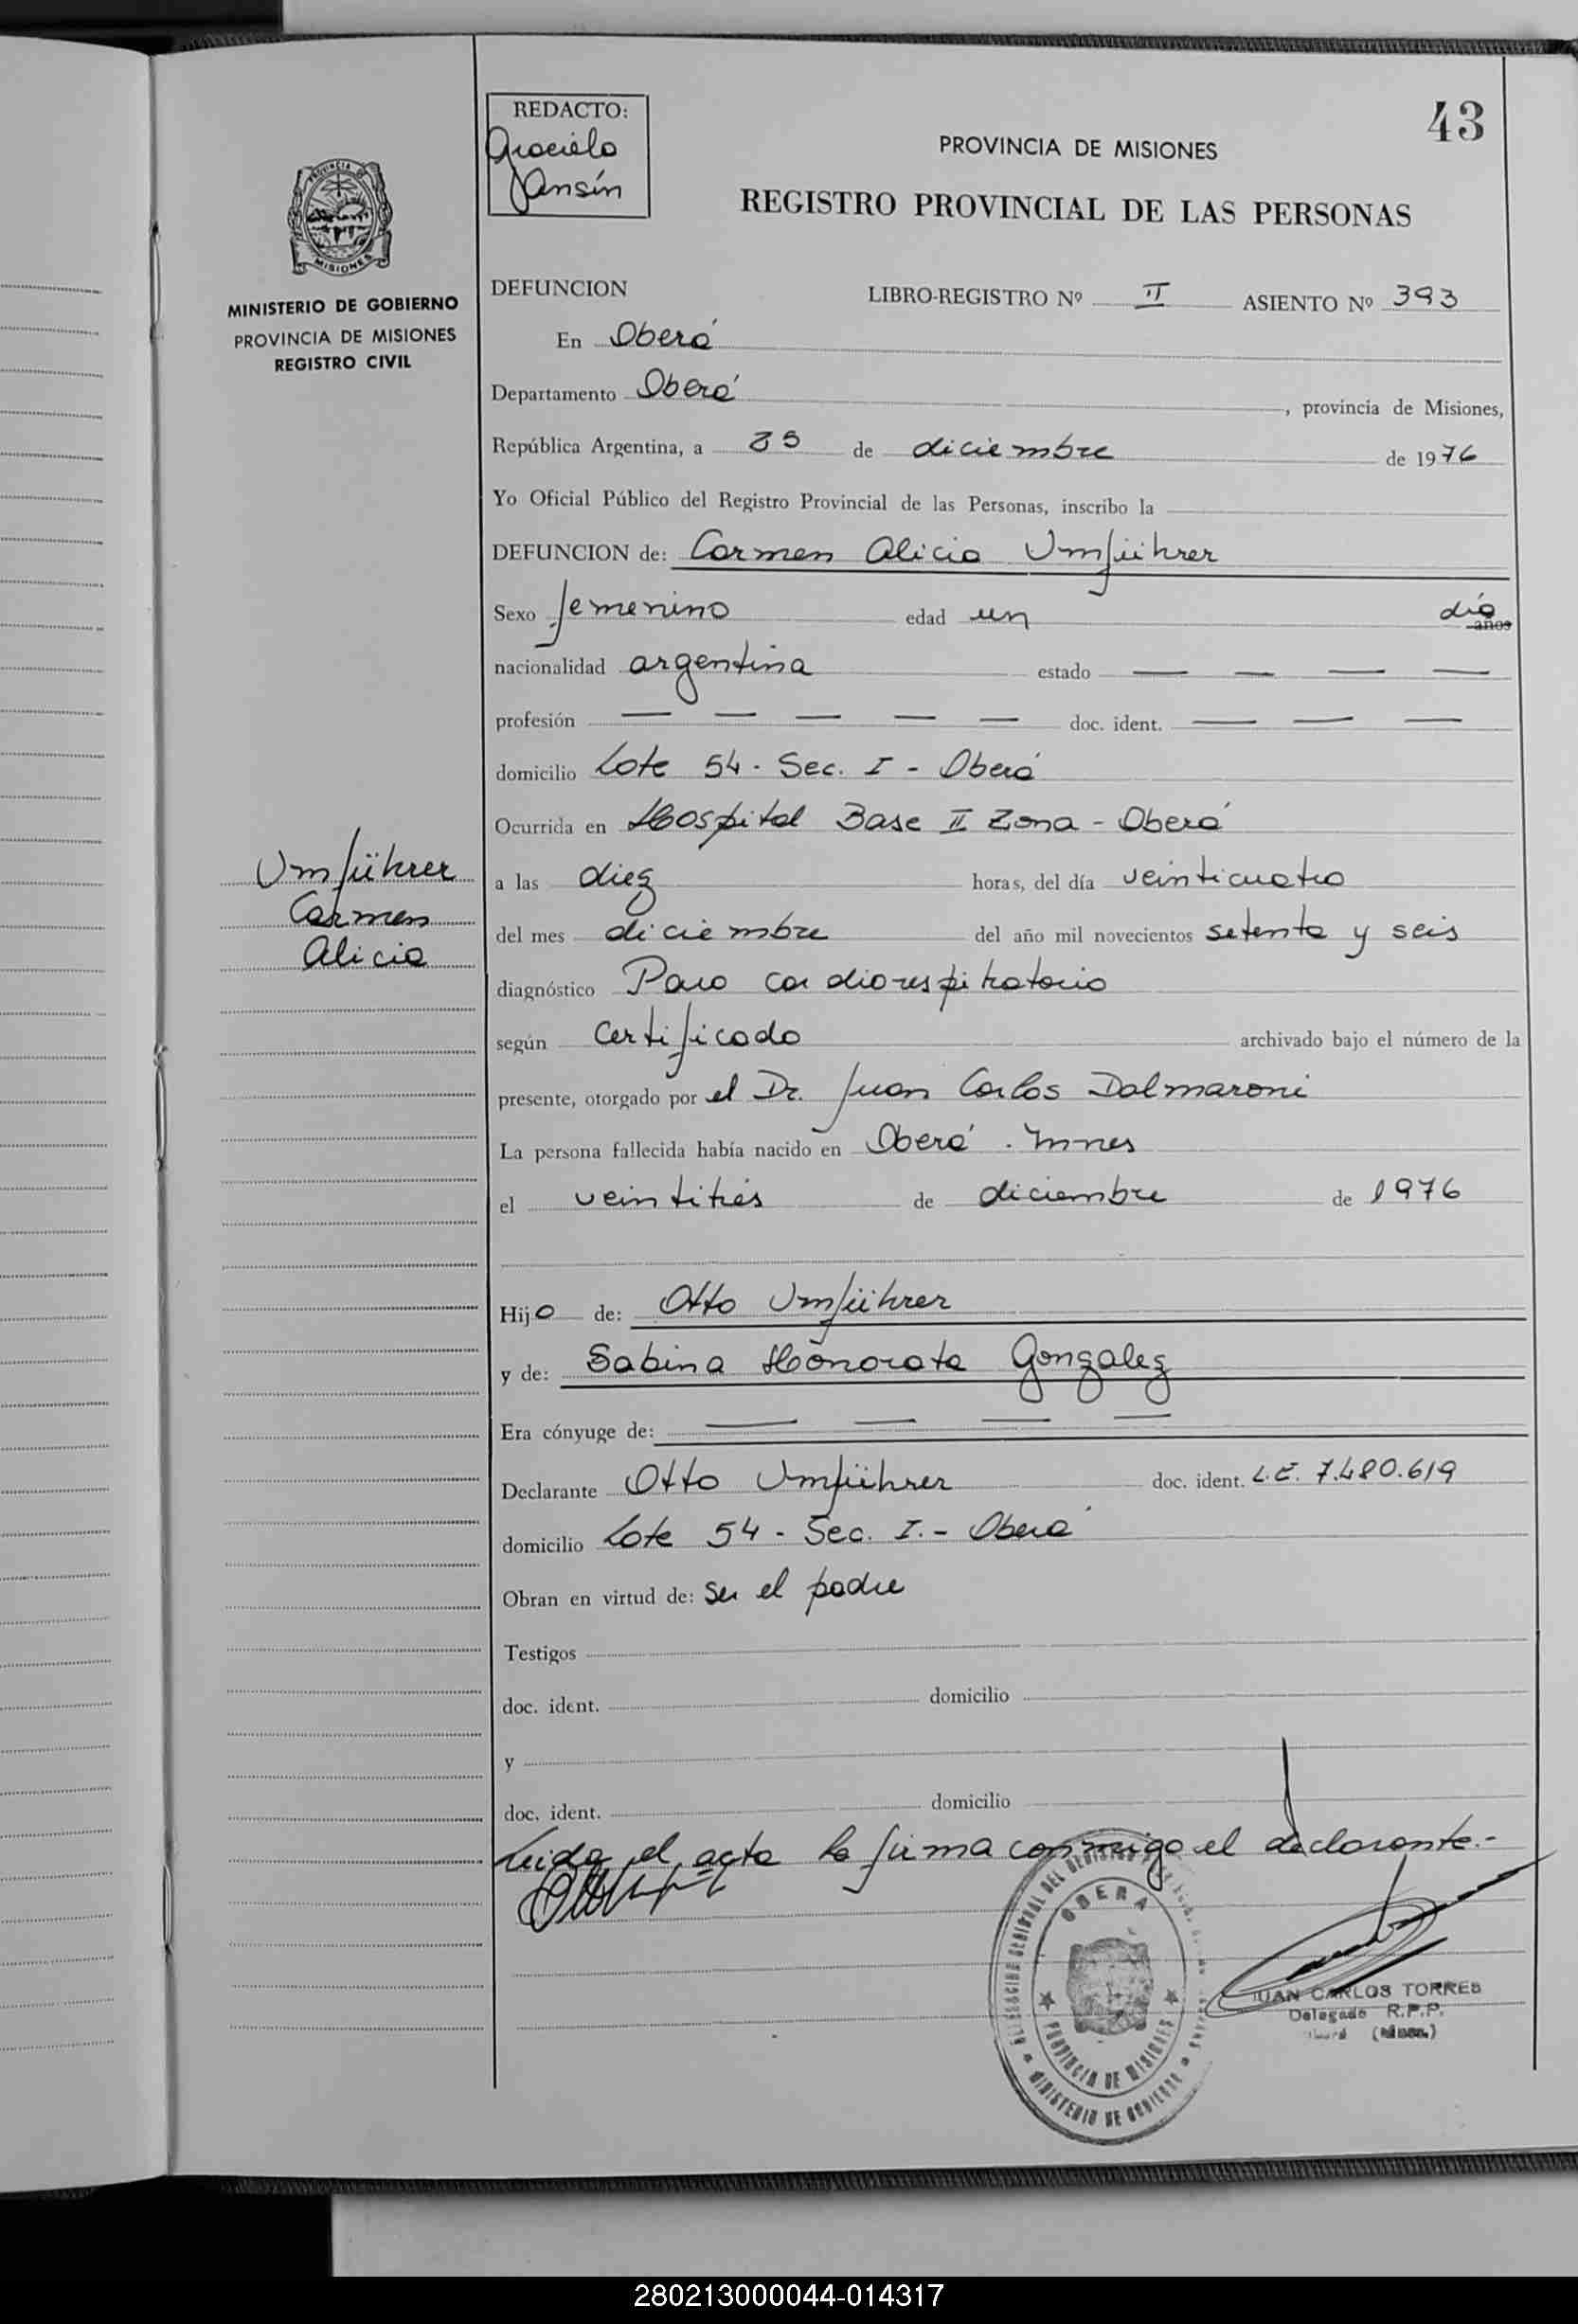 43
REDACTO:
Graciela
Jansín
PROVINCIA DE MISIONES
REGISTRO PROVINCIAL DE LAS PERSONAS
PROVINCIA DE
MISIONES
MINISTERIO DE GOBIERNO
PROVINCIA DE MISIONES
REGISTRO CIVIL
DEFUNCION LIBRO-REGISTRO Nº II ASIENTO Nº 393
En Oberá
Departamento Oberá , provincia de Misiones,
República Argentina, a 25 de diciembre de 1976
Yo Oficial Público del Registro Provincial de las Personas, inscribo la
DEFUNCION de: Carmen Alicia Umführer
Sexo femenino edad un día años
nacionalidad argentina estado — — — —
profesión — — — — — doc. ident. — — —
domicilio Lote 54 - Sec. I - Oberá
Ocurrida en Hospital Base II Zona - Oberá
Umführer
Carmen
Alicia
a las diez horas, del día veinticuatro
del mes diciembre del año mil novecientos setenta y seis
diagnóstico Paro cardiorespiratorio
según Certificado archivado bajo el número de la
presente, otorgado por el Dr. Juan Carlos Dalmaroni
La persona fallecida había nacido en Oberá - Mnes
el veintitrés de diciembre de 1976
Hija de: Otto Umführer
y de: Sabina Honorata Gonzalez
Era cónyuge de: — — — —
Declarante Otto Umführer doc. ident. L.E. 7.480.619
domicilio Lote 54 - Sec. I. - Oberá
Obran en virtud de: Ser el padre
Testigos
doc. ident. domicilio
y
doc. ident. domicilio
Leida el acta la firma conmigo el declarante.-
OBERA
PROVINCIA DE MISIONES
MINISTERIO DE GOBIERNO
JUAN CARLOS TORRES
Delegado R.P.P.
280213000044-014317